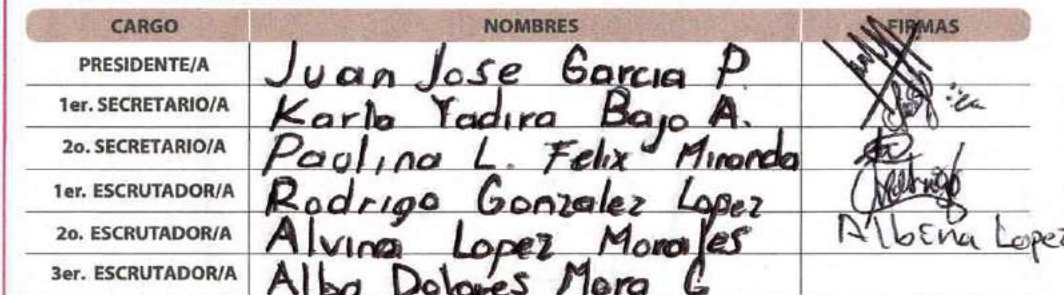 CARGO NOMBRES FIRMAS
PRESIDENTE/A Juan Jose Garcia P.
1er. SECRETARIO/A Karla Yadira Bajo A.
2o. SECRETARIO/A Paolina L. Felix Miranda
1er. ESCRUTADOR/A Rodrigo Gonzalez Lopez
2o. ESCRUTADOR/A Alvina Lopez Morales Albena Lopez
3er. ESCRUTADOR/A Alba Dolores Mora G